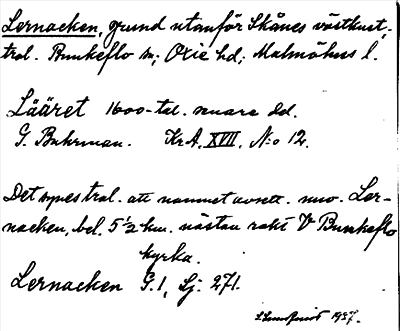 Lernacken, grund utanför Skånes västkust,
tral. Bunkeflo sn; Oxie hd; Malmöhus l.
Lååret 1600-tal. senare del.
G. Buhrman. Kr.A. XVII, N:o 12.
Det synes tral. att namnet avsett. nuv. Ler-
nacken, bel. 5 1/2 km. nästan rakt V Bunkeflo
kyrka.
Lernacken G.1, Sj: 271.
1937.